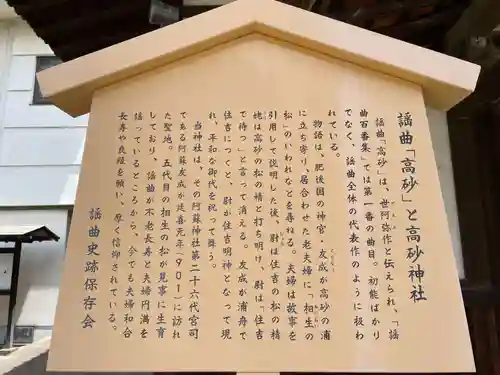 謡曲「高砂」と高砂神社
謡曲「高砂」は、世阿弥作と伝えられ、「謡
曲百番集」では第一番の曲目。初能ばかり
でなく、謡曲全体の代表作のように扱わ
れている。
物語は、肥後国の神官 友成が高砂の浦
に立ち寄り居合わせた老夫婦に「相生の
松」のいわれなどを尋ねる。夫婦は故事を
引用して説明した後、尉は住吉の松の精
姥は高砂の松の精と打ち明け、尉は「住吉
で待つ」と言って消える。友成が浦舟で
住吉につくと、尉が住吉明神となって現
れ、平和な御代を祝って舞う。
当神社は、その阿蘇神社第二十六代宮司
である阿蘇友成が延喜元年(901)に訪れ
た聖地。五代目の相生の松が見事に生育
しており、謡曲が不老長寿と夫婦円満を
謡っているところから、今でも夫婦和合
長寿や良縁を願い、厚く信仰されている。
謡曲史跡保存会